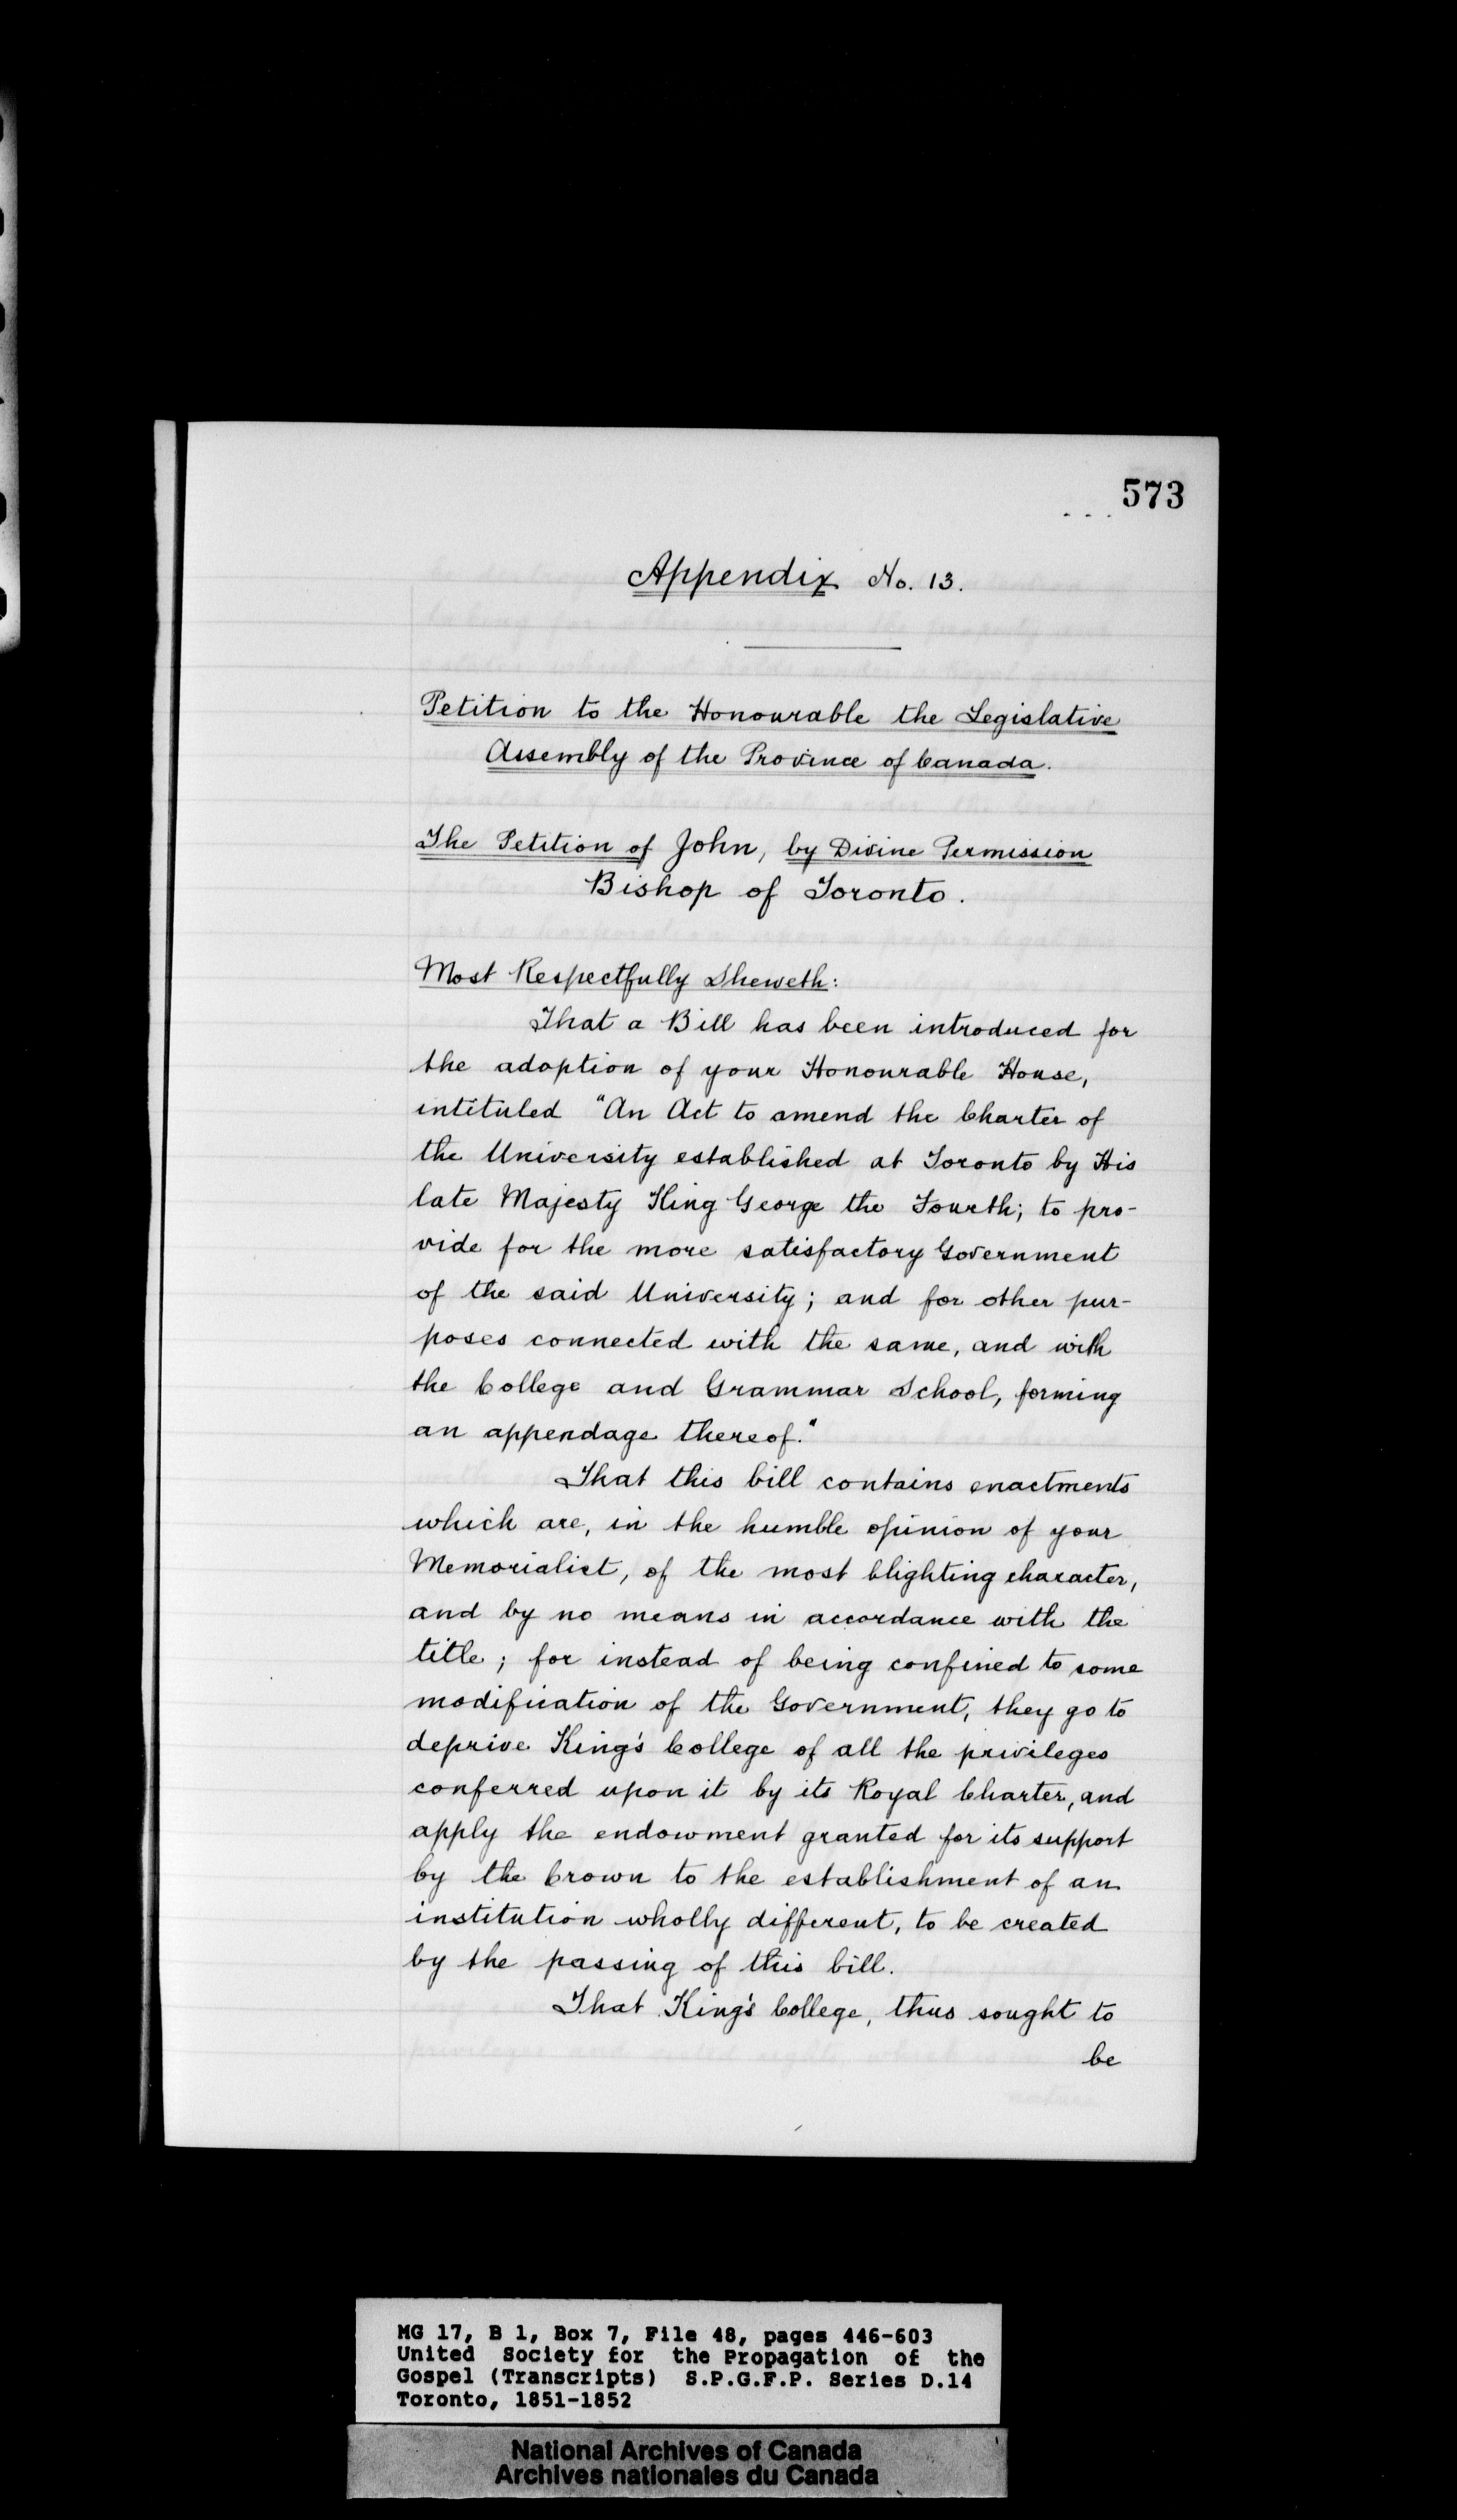 573
Appendix No. 13.
Petition to the Honourable the Legislative
Assembly of the Province of Canada.
The Petition of John, by Divine Permission
Bishop of Toronto.
Most Respectfully Sheweth:
That a Bill has been introduced for
the adoption of your Honourable House,
intituled "An Act to amend the Charter of
the University established at Toronto by His
late Majesty King George the Fourth; to pro-
vide for the more satisfactory Government
of the said University; and for other pur-
poses connected with the same, and with
the College and Grammar School, forming
an appendage thereof."
That this bill contains enactments
which are, in the humble opinion of your
Memorialist, of the most blighting character,
and by no means in accordance with the
title; for instead of being confined to some
modification of the Government, they go to
deprive King's College of all the privileges
conferred upon it by its Royal Charter, and
apply the endowment granted for its support
by the Crown to the establishment of an
institution wholly different, to be created
by the passing of this bill.
That King's College, thus sought to
be
MG 17, B 1, Box 7, File 48, pages 446-603
United Society for the Propagation of the
Gospel (Transcripts) S.P.G.F.P. Series D.14
Toronto, 1851-1852
National Archives of Canada
Archives nationales du Canada